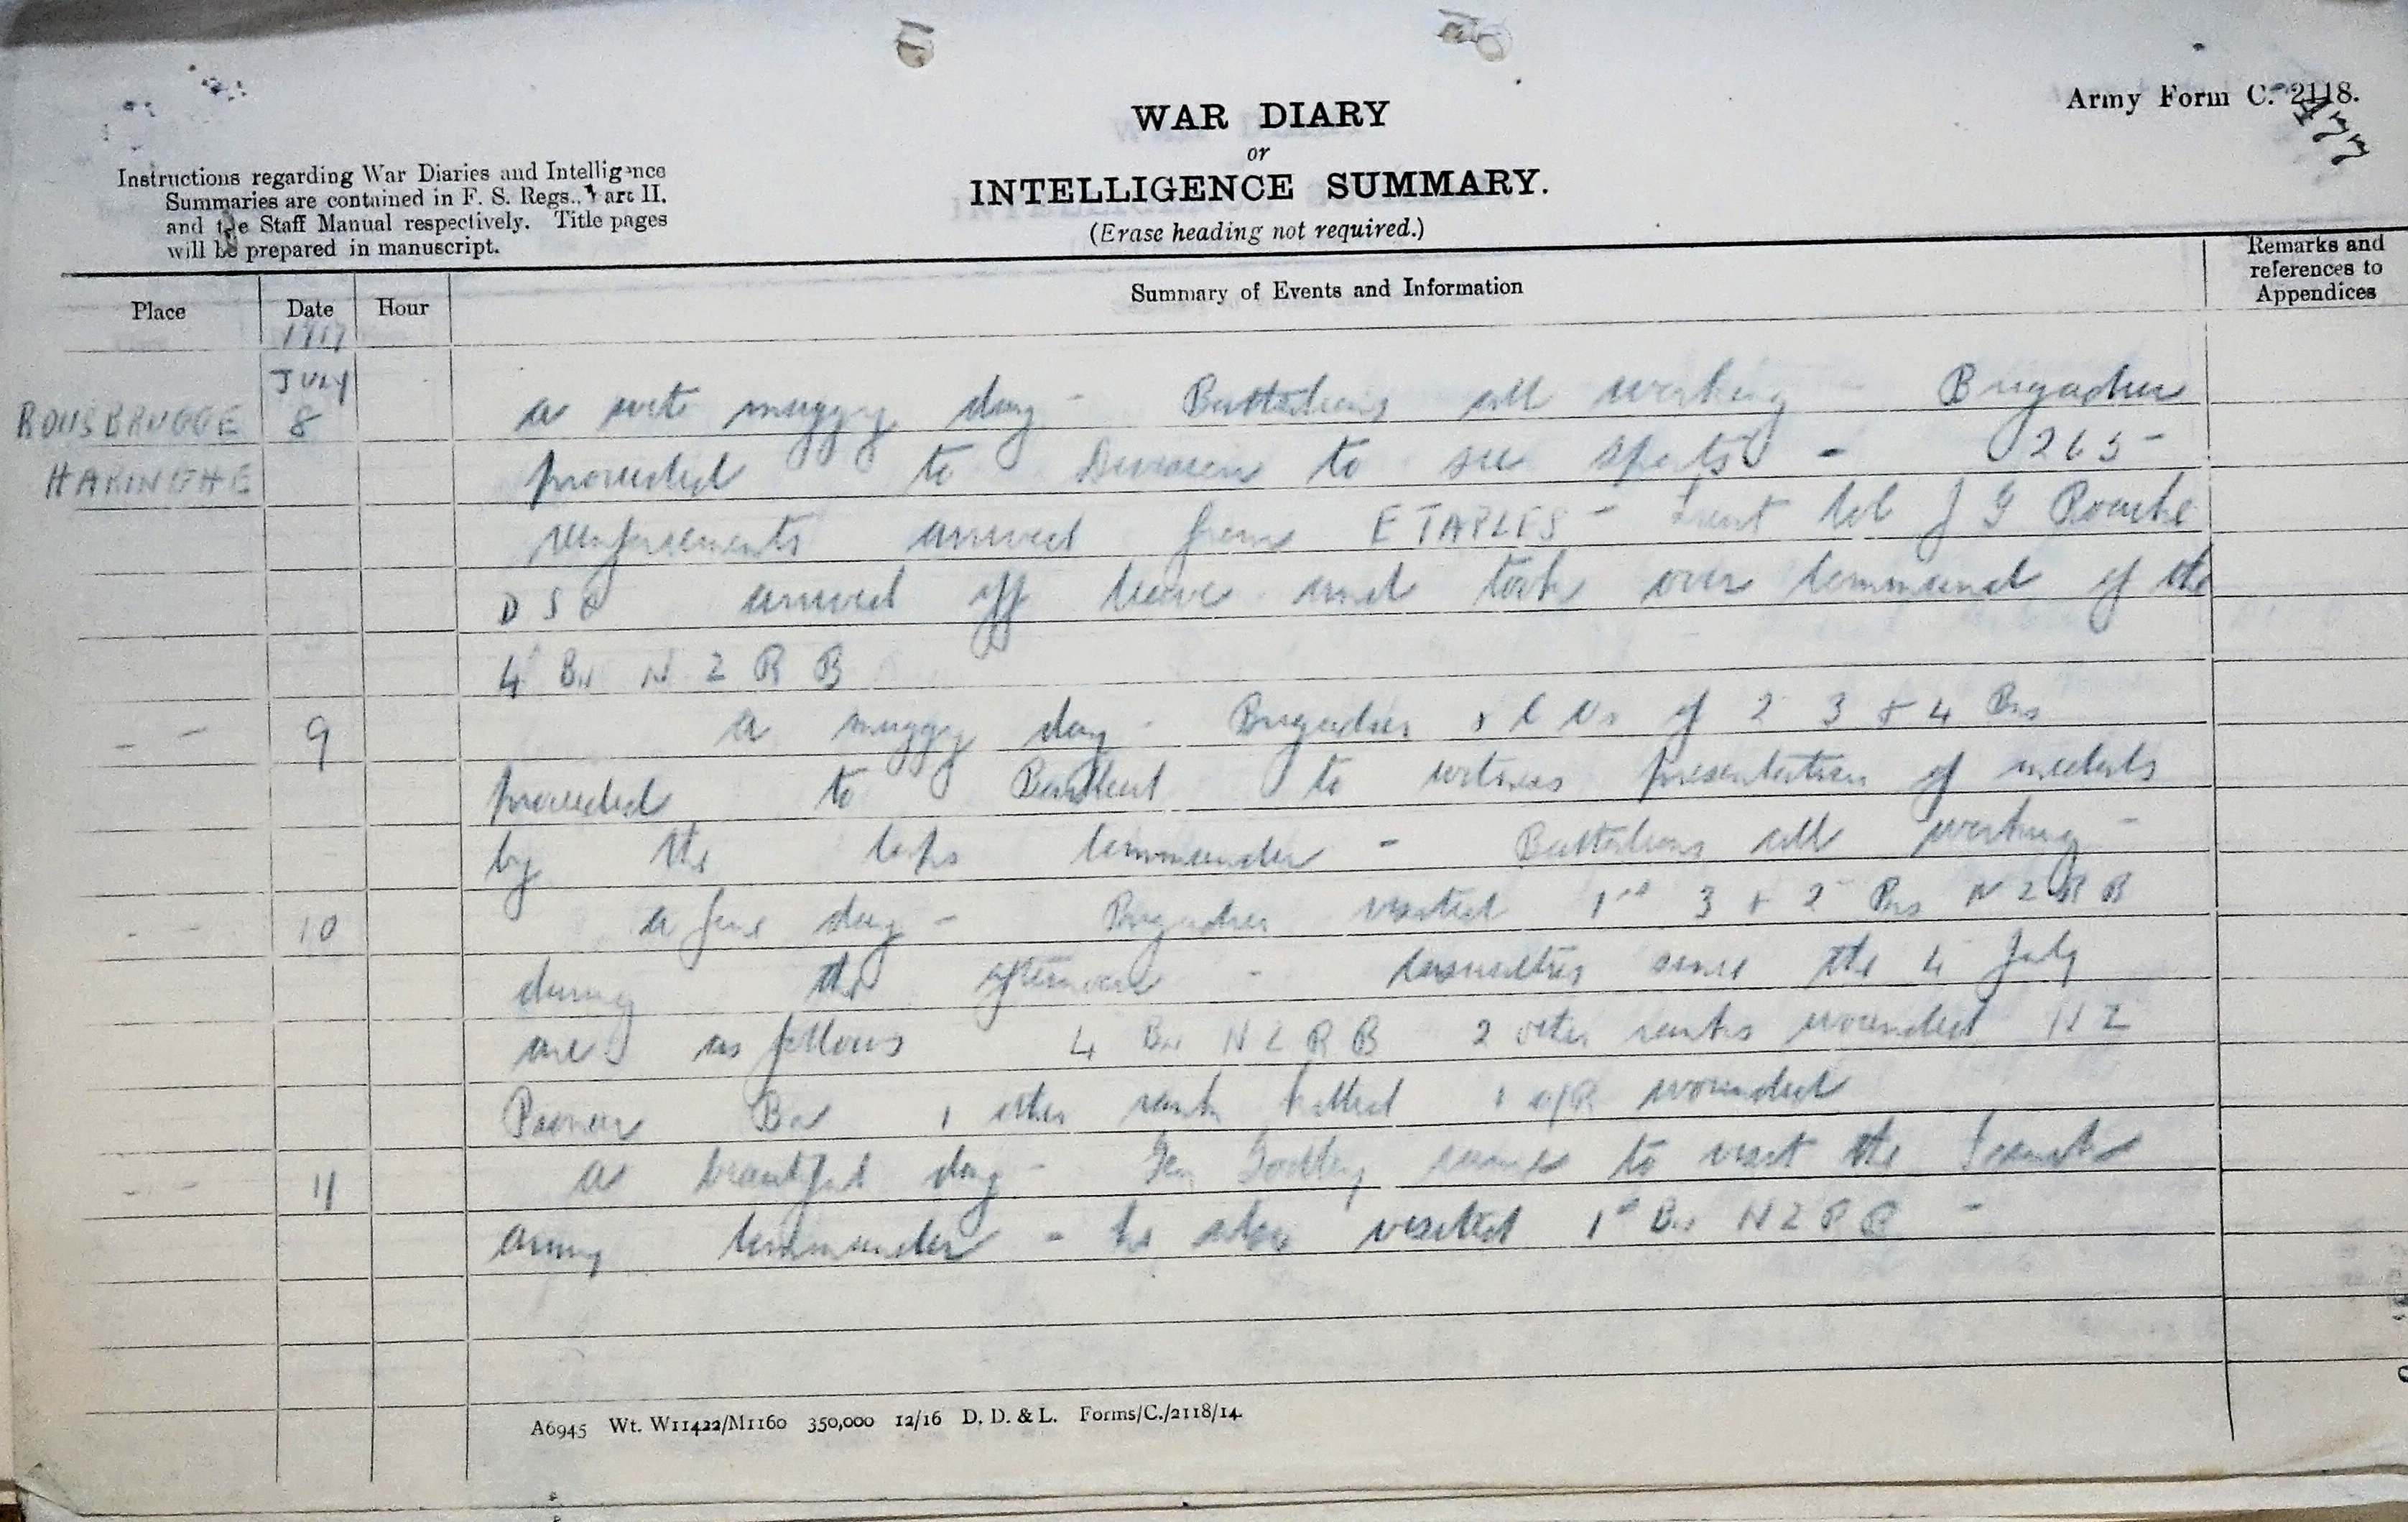 Army Form C. 2118.
477
WAR DIARY
or
INTELLIGENCE SUMMARY.
(Erase heading not required.)
Instructions regarding War Diaries and Intelligence
Summaries are contained in F. S. Regs., Part II.
and the Staff Manual respectively. Title pages
will be prepared in manuscript.
Place Date Hour Summary of Events and Information Remarks and references to Appendices
1917
JULY
ROUSBRUGGE 8 a wet muggy day - Battalions all working - Brigadier
HARINGHE proceeded to Division to see sports - 265 -
reinforsements arrived from ETAPLES - Lieut Col J G Roache
D S O arrived off leave and took over Command of the
4 Bn N Z R B
- - 9 a muggy day - Brigadier & C Os of 2 3 & 4 Bns
proceeded to to witness presentation of medals
by the Corps Commander - Battalions all working -
- - 10 a fine day - Brigadier visited 1st 3 & 2 Bns N Z R B
during the afternoon - Casualties since the 4 July
are as follows 4 Bn N Z R B 2 other ranks wounded N Z
Pioneer Bn 1 other rank killed 1 O/R wounded
- - 11 a beautiful day - Gen Godley came to visit the French
Army Commander - he also visited 1st Bn N Z R B -
A6945 Wt. W11422/M1160 350,000 12/16 D. D. & L. Forms/C./2118/14.